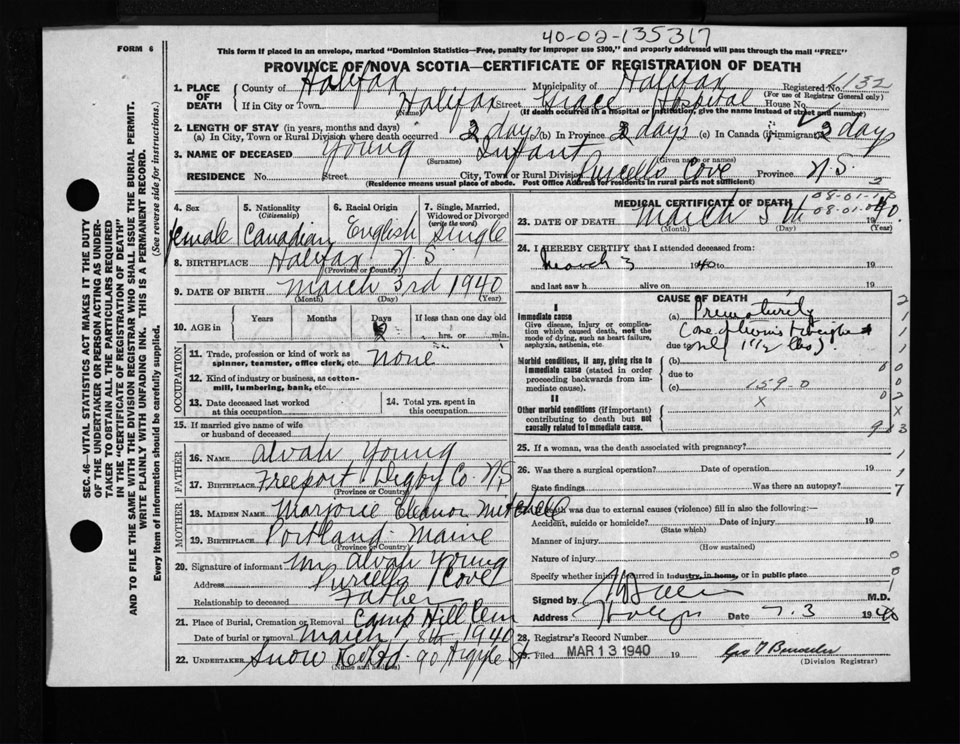 40-02-135317
FORM 6
This form if placed in an envelope, marked "Dominion Statistics—Free, penalty for improper use $300," and properly addressed will pass through the mail "FREE"
PROVINCE OF NOVA SCOTIA—CERTIFICATE OF REGISTRATION OF DEATH
1. PLACE OF DEATH County of Halifax Municipality of Halifax Registered No. 1132
(For use of Registrar General only)
If in City or Town Halifax (Name) Street Grace Hospital House No.
(If death occurred in a hospital or institution, give the name instead of street and number)
2. LENGTH OF STAY (in years, months and days)
(a) In City, Town or Rural Division where death occurred 2 days (b) In Province 2 days (c) In Canada (if immigrant) 2 days
3. NAME OF DECEASED Young (Surname) Infant (Given name or names)
RESIDENCE No. Street City, Town or Rural Division Purcells Cove Province N.S.
(Residence means usual place of abode. Post Office Address for residents in rural parts not sufficient)
4. Sex female
5. Nationality (Citizenship) Canadian
6. Racial Origin English
7. Single, Married, Widowed or Divorced (write the word) Single
8. BIRTHPLACE Halifax N S
(Province or Country)
9. DATE OF BIRTH March 3rd 1940
(Month) (Day) (Year)
10. AGE in Years Months Days If less than one day old
hrs. or min.
OCCUPATION
11. Trade, profession or kind of work as spinner, teamster, office clerk, etc. none
12. Kind of industry or business, as cotton-mill, lumbering, bank, etc.
13. Date deceased last worked at this occupation
14. Total yrs. spent in this occupation
15. If married give name of wife or husband of deceased
FATHER
16. NAME Alvah Young
17. BIRTHPLACE Freeport Digby Co. N.S
(Province or Country)
MOTHER
18. MAIDEN NAME Marjorie Eleanor Mitchell
19. BIRTHPLACE Portland Maine
(Province or Country)
20. Signature of informant Alvah Young
Address Purcells Cove
Relationship to deceased Father
21. Place of Burial, Cremation or Removal Camp Hill Cem
Date of burial or removal March 8th 1940
22. UNDERTAKER Snow & Co Ltd 90 Argyle St
(Name and Address)
MEDICAL CERTIFICATE OF DEATH
08-01-
08-01-
23. DATE OF DEATH March 5th 1940.
(Month) (Day) (Year)
24. I HEREBY CERTIFY that I attended deceased from:
March 3 1940 to 19
and last saw h alive on 19
CAUSE OF DEATH
I
Immediate cause
Give disease, injury or complication which caused death, not the mode of dying, such as heart failure, asphyxia, asthenia, etc.
(a) Prematurity
due to only 1 1/2 lbs).
Morbid conditions, if any, giving rise to immediate cause (stated in order proceeding backwards from immediate cause).
(b)
due to
(c) 159-0
II
Other morbid conditions (if important) contributing to death but not causally related to immediate cause.
x
25. If a woman, was the death associated with pregnancy?
26. Was there a surgical operation? Date of operation 19
State findings Was there an autopsy?
27. If death was due to external causes (violence) fill in also the following:—
Accident, suicide or homicide? Date of injury 19
(State which)
Manner of injury
(How sustained)
Nature of injury
Specify whether injury occurred in industry, in home, or in public place
Signed by M.D.
Address Date 1940
28. Registrar's Record Number
Filed MAR 13 1940 19
(Division Registrar)
SEC. 46—VITAL STATISTICS ACT MAKES IT THE DUTY
OF THE UNDERTAKER OR PERSON ACTING AS UNDER-
TAKER TO OBTAIN ALL THE PARTICULARS REQUIRED
IN THE "CERTIFICATE OF REGISTRATION OF DEATH"
AND TO FILE THE SAME WITH THE DIVISION REGISTRAR WHO SHALL ISSUE THE BURIAL PERMIT.
WRITE PLAINLY WITH UNFADING INK. THIS IS A PERMANENT RECORD.
Every item of information should be carefully supplied. (See reverse side for instructions.)